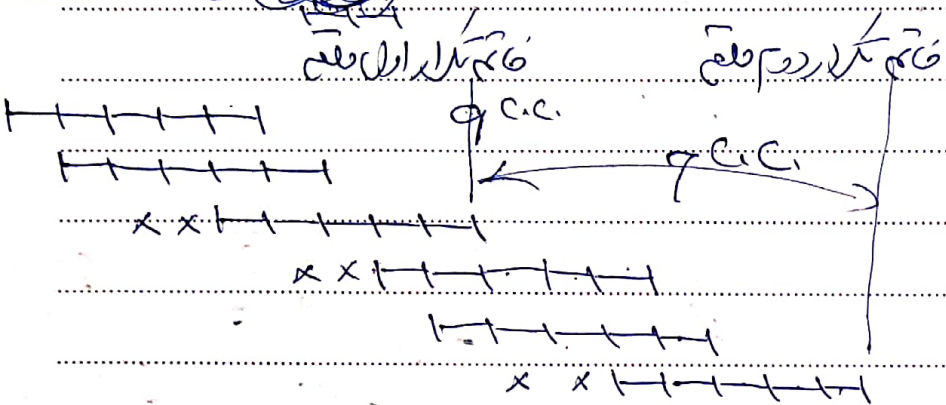 خاتم تکرار اول حلقه خاتم تکرار دوم حلقه
9 C.C.
9 C.C.
x x
x x
x x